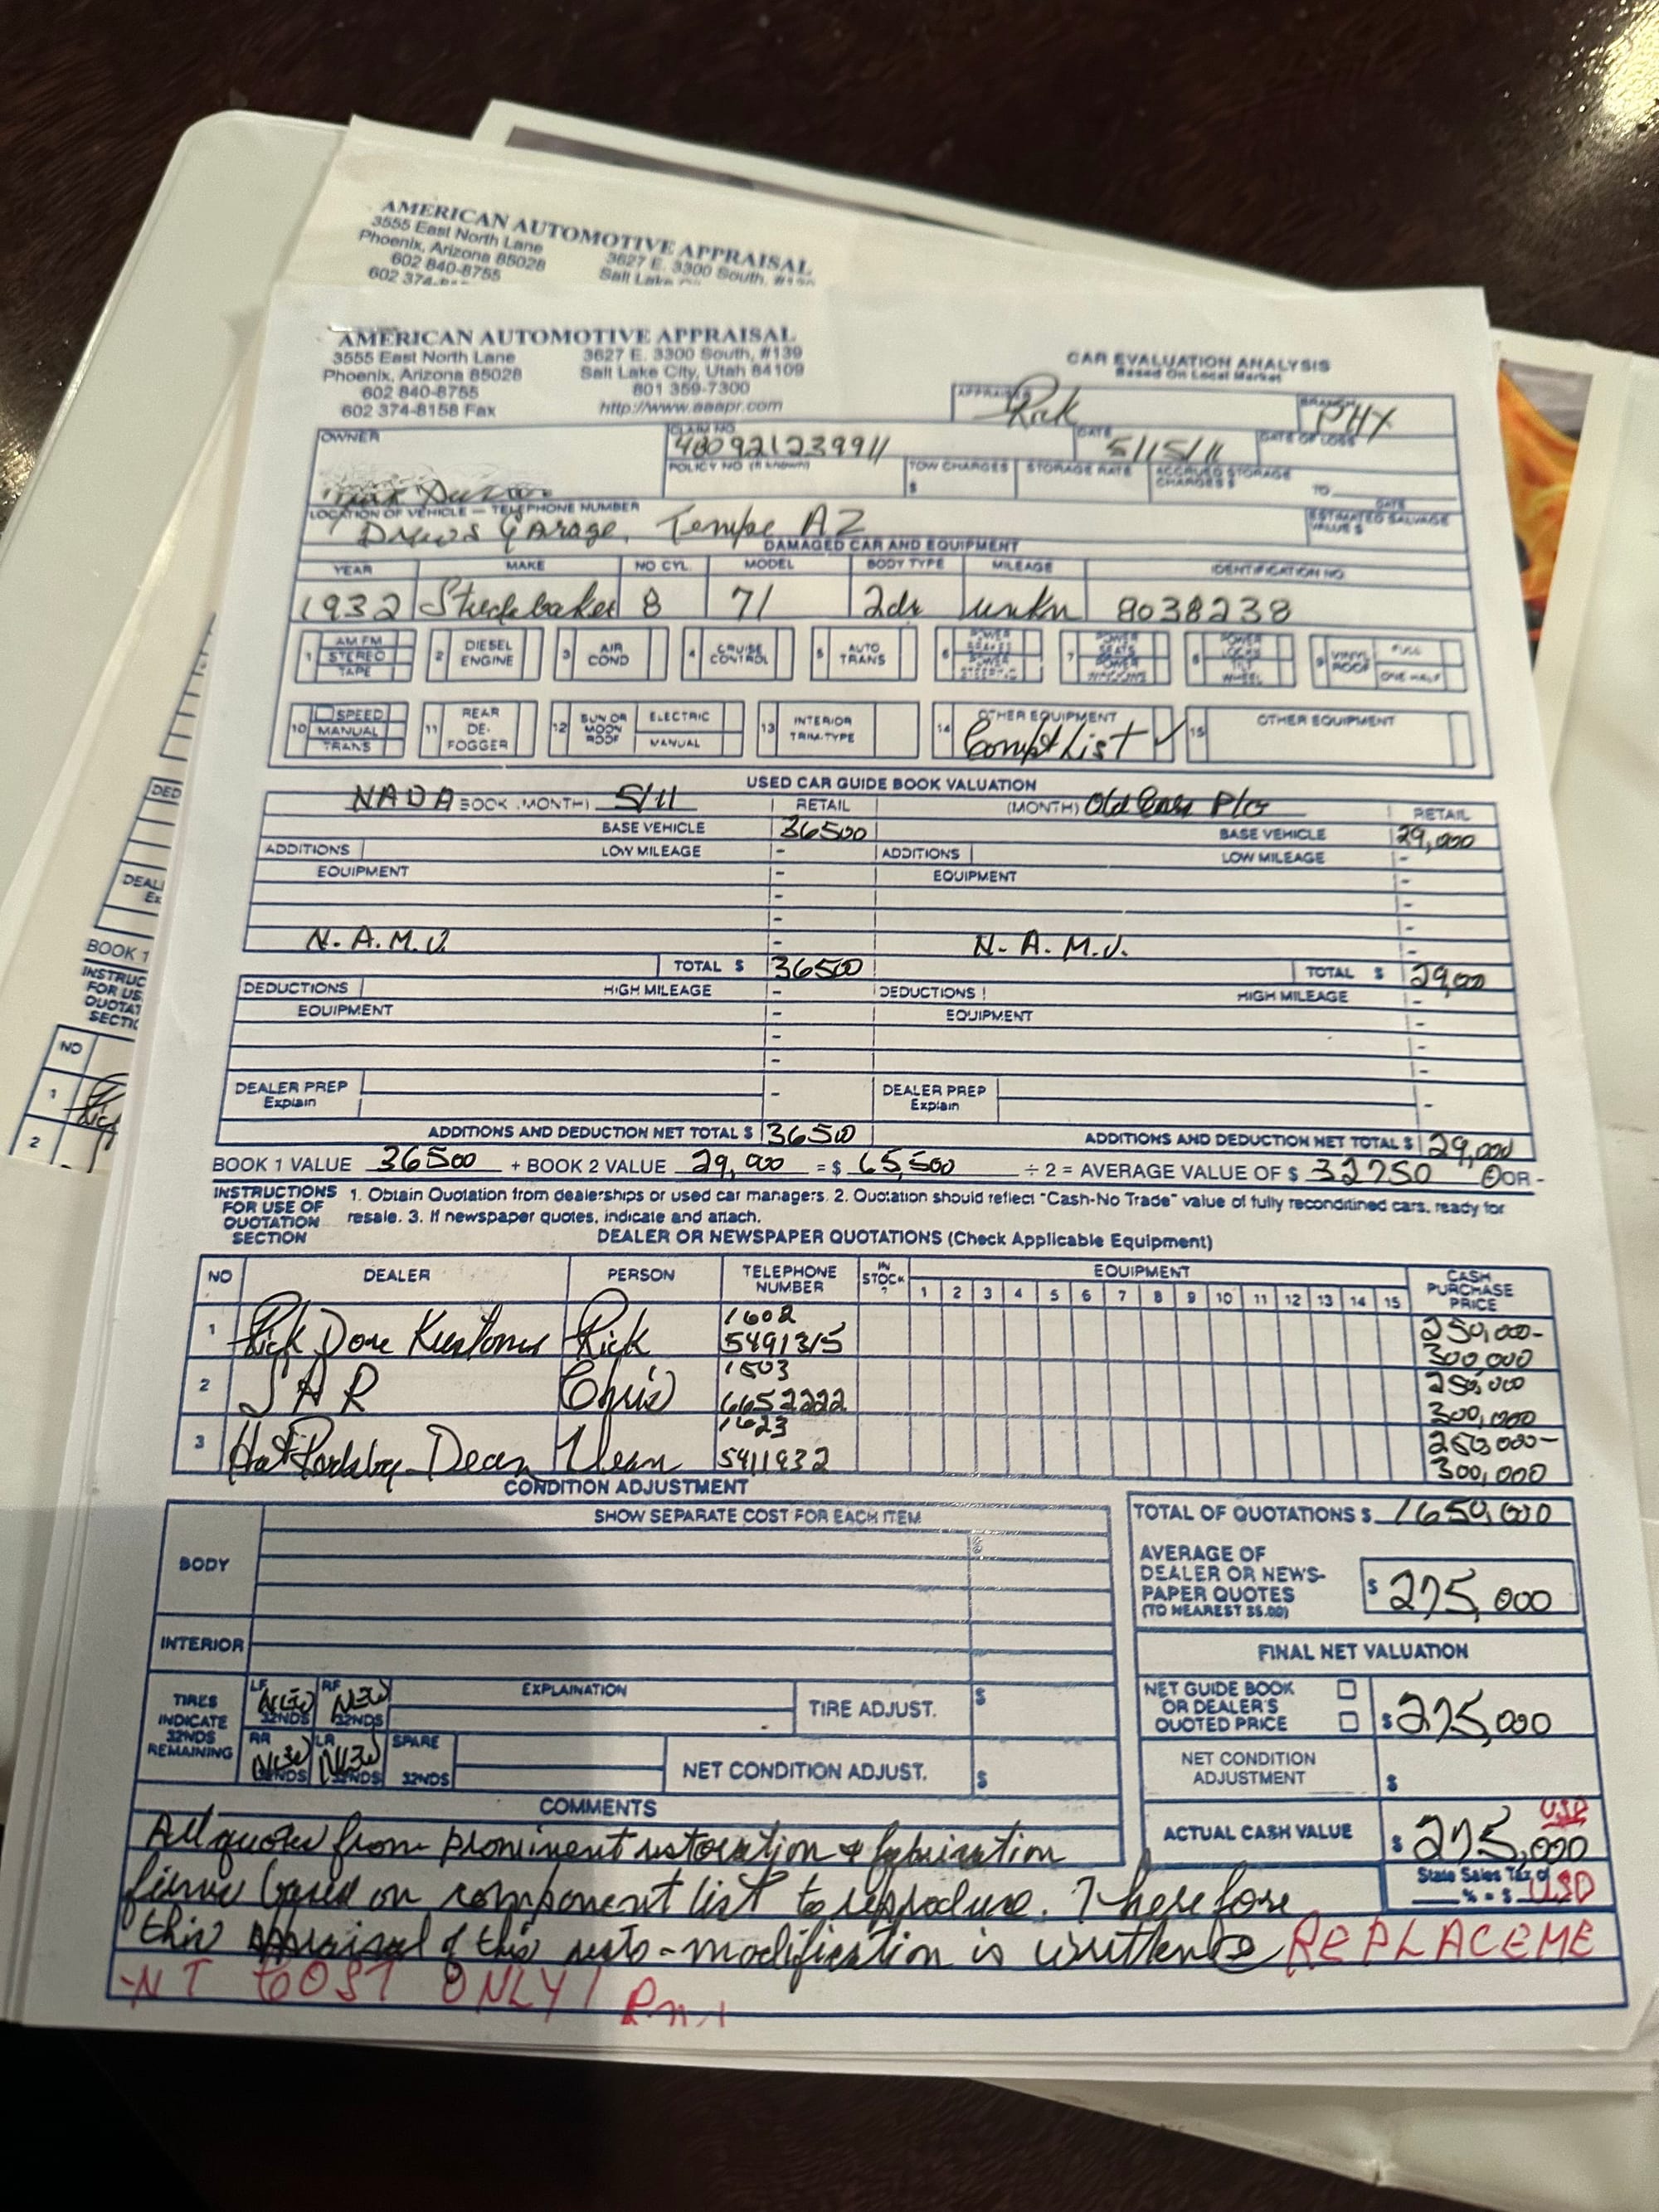 AMERICAN AUTOMOTIVE APPRAISAL
3555 East North Lane
Phoenix, Arizona 85028
602 840-8755
602 374-8
3627 E. 3300 South, #139
Salt Lake
AMERICAN AUTOMOTIVE APPRAISAL
3555 East North Lane
Phoenix, Arizona 85028
602 840-8755
602 374-8158 Fax
3627 E. 3300 South, #139
Salt Lake City, Utah 84109
801 359-7300
http://www.aaapr.com
CAR EVALUATION ANALYSIS
Based On Local Market
APPRAISER Rick
BRANCH PHX
OWNER
CLAIM NO. 480921239911
DATE 5/15/11
DATE OF LOSS
POLICY NO (if known)
TOW CHARGES $
STORAGE RATE
ACCRUED STORAGE CHARGES $
TO
DATE
LOCATION OF VEHICLE — TELEPHONE NUMBER
Drews Garage, Tempe AZ
ESTIMATED SALVAGE VALUE $
DAMAGED CAR AND EQUIPMENT
YEAR MAKE NO CYL. MODEL BODY TYPE MILEAGE IDENTIFICATION NO.
1932 Studebaker 8 71 2dr unkn 8038238
1 AM FM STEREO TAPE
2 DIESEL ENGINE
3 AIR COND
4 CRUISE CONTROL
5 AUTO TRANS
6 POWER POWER STEERING
7 POWER SEATS POWER WINDOWS
8 POWER LOCKS TILT WHEEL
9 VINYL ROOF FULL ONE HALF
10 SPEED MANUAL TRANS
11 REAR DE-FOGGER
12 SUN OR MOON ROOF ELECTRIC MANUAL
13 INTERIOR TRIM-TYPE
14 OTHER EQUIPMENT Comp List ✓
15 OTHER EQUIPMENT
USED CAR GUIDE BOOK VALUATION
NADA BOOK (MONTH) 5/11 RETAIL
(MONTH) Old Cars P/G RETAIL
BASE VEHICLE 36500
BASE VEHICLE 29,000
ADDITIONS LOW MILEAGE -
ADDITIONS LOW MILEAGE -
EQUIPMENT
EQUIPMENT
N.A.M.V.
N.A.M.V.
TOTAL $ 36500
TOTAL $ 29,00
DEDUCTIONS HIGH MILEAGE -
DEDUCTIONS HIGH MILEAGE -
EQUIPMENT
EQUIPMENT
DEALER PREP Explain
DEALER PREP Explain
ADDITIONS AND DEDUCTION NET TOTAL $ 36500
ADDITIONS AND DEDUCTION NET TOTAL $ 29,000
BOOK 1 VALUE 36500 + BOOK 2 VALUE 29,000 = $ 65,500 ÷ 2 = AVERAGE VALUE OF $ 32750 OR -
INSTRUCTIONS FOR USE OF QUOTATION SECTION
1. Obtain Quotation from dealerships or used car managers. 2. Quotation should reflect "Cash-No Trade" value of fully reconditined cars, ready for
resale. 3. If newspaper quotes, indicate and attach.
DEALER OR NEWSPAPER QUOTATIONS (Check Applicable Equipment)
NO DEALER PERSON TELEPHONE NUMBER IN STOCK ? EQUIPMENT CASH PURCHASE PRICE
1 2 3 4 5 6 7 8 9 10 11 12 13 14 15
1 Rick Dore Kustoms Rick 1602 5491315 250,000- 300000
2 SAR Chris 1503 6652222 250,000 300,000
3 Dean 1623 5411932 250,000- 300,000
CONDITION ADJUSTMENT
SHOW SEPARATE COST FOR EACH ITEM
BODY
INTERIOR
TIRES INDICATE 32NDS REMAINING
LF NEW 32NDS
RF NEW 32NDS
RR NEW 32NDS
LR NEW 32NDS
SPARE 32NDS
EXPLAINATION
TIRE ADJUST. $
NET CONDITION ADJUST. $
TOTAL OF QUOTATIONS $ 1650,000
AVERAGE OF DEALER OR NEWS-PAPER QUOTES (TO NEAREST $5.00) $ 275,000
FINAL NET VALUATION
NET GUIDE BOOK OR DEALER'S QUOTED PRICE $ 275,000
NET CONDITION ADJUSTMENT $
ACTUAL CASH VALUE $ 275,000 USD
State Sales Tax of % = $ USD
COMMENTS
All quotes from prominent restoration & fabrication
firms based on component list to reproduce. Therefore
this appraisal of this resto-modification is written @ REPLACEME
-NT COST ONLY!
DED
DEAL
Ex
BOOK 1
INSTRUC
FOR US
QUOTAT
SECTIO
NO
1
2